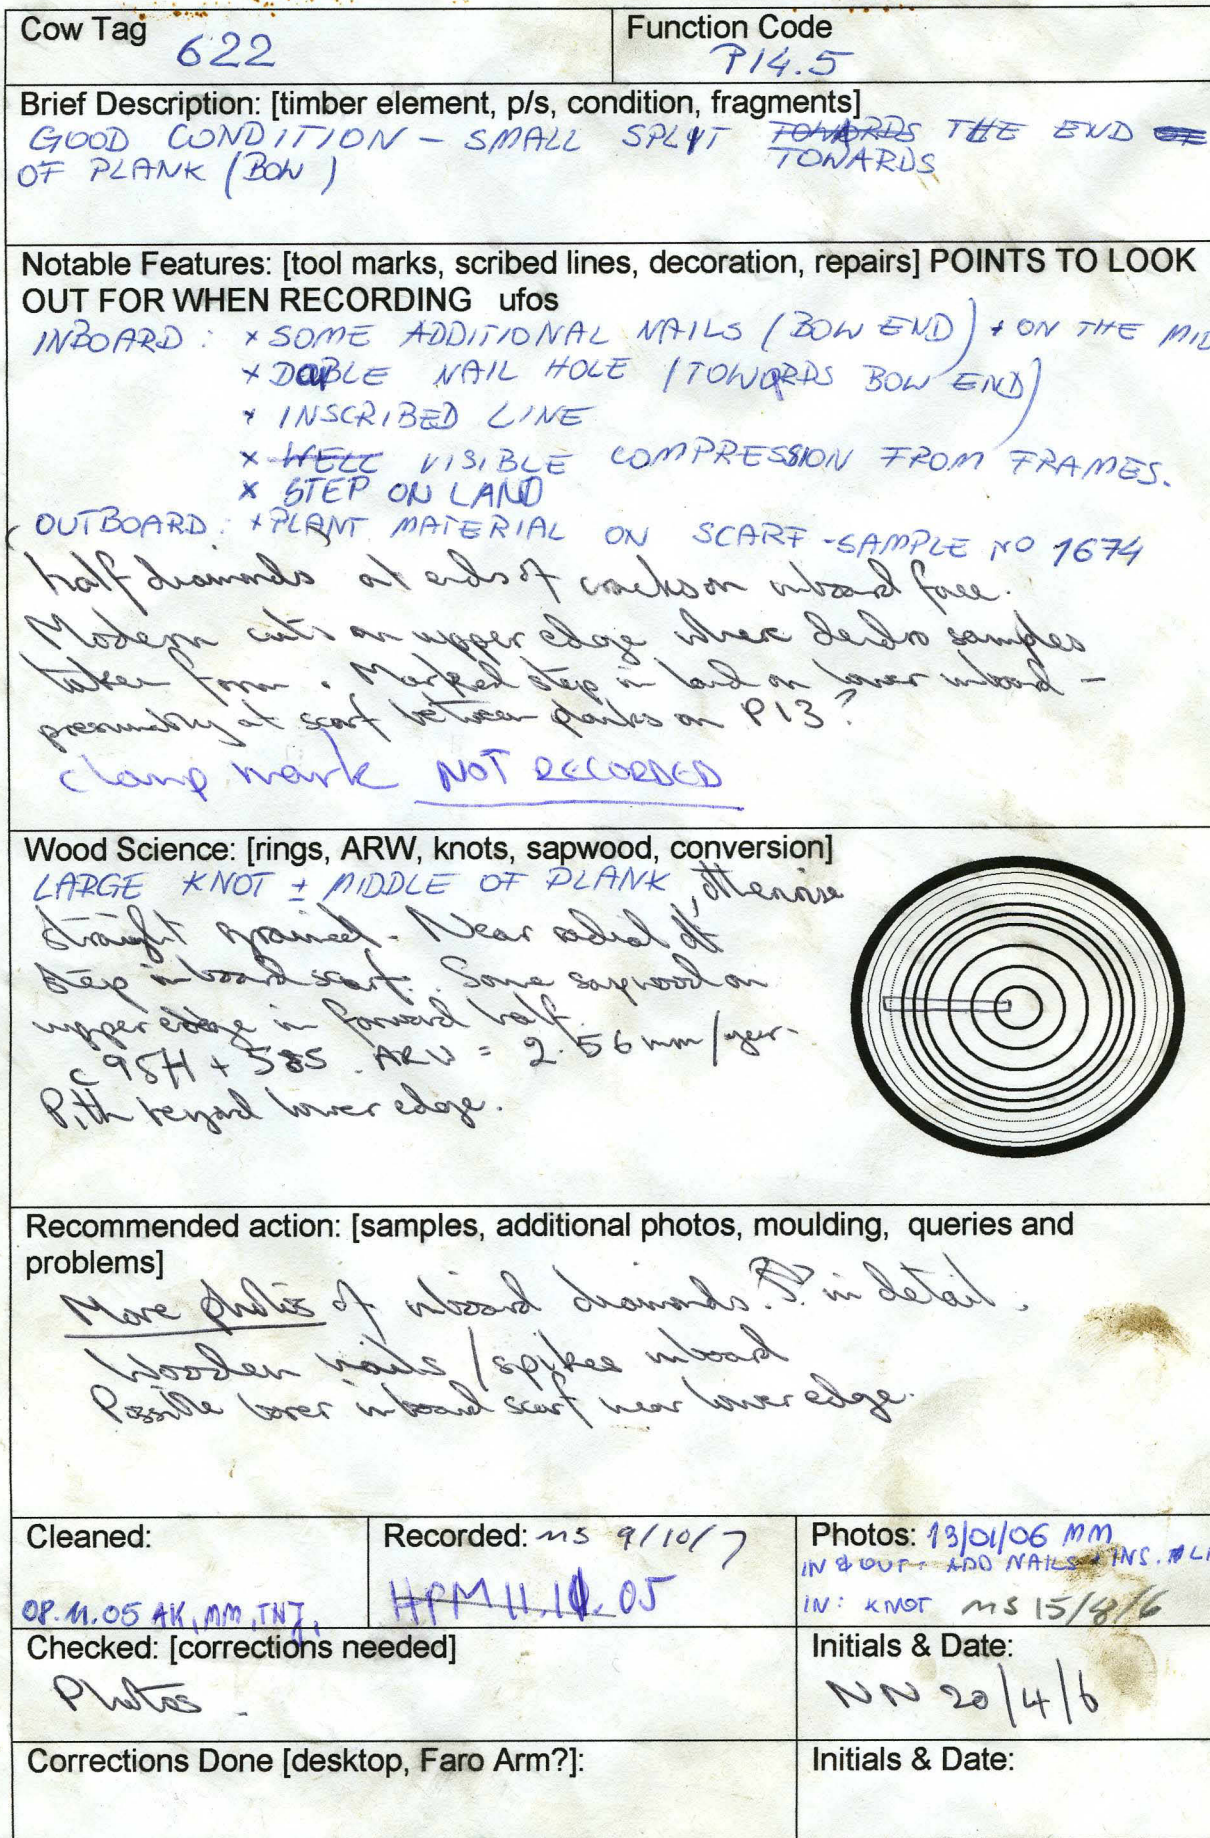 Cow Tag 622
Function Code P14.5
Brief Description: [timber element, p/s, condition, fragments]
GOOD CONDITION - SMALL SPLIT TOWARDS THE END OF
TOWARDS
OF PLANK (BOW)
Notable Features: [tool marks, scribed lines, decoration, repairs] POINTS TO LOOK
OUT FOR WHEN RECORDING ufos
INBOARD: x SOME ADDITIONAL NAILS (BOW END) + ON THE MID
x DOUBLE NAIL HOLE (TOWARDS BOW END)
x INSCRIBED LINE
x WELL VISIBLE COMPRESSION FROM FRAMES.
x STEP ON LAND
OUTBOARD: x PLANT MATERIAL ON SCARF - SAMPLE NO 1674
half diamonds at ends of cracks on inboard face.
Modern cuts on upper edge where dendro samples
taken from. Marked step in land on lower inboard -
presumably at scarf between planks on P13?
clamp mark NOT RECORDED
Wood Science: [rings, ARW, knots, sapwood, conversion]
LARGE KNOT ± MIDDLE OF PLANK, otherwise
straight grained. Near radial at
step inboard scarf. Some sapwood on
upper edge in forward half.
c 95H + ARW = 2.56 mm/year.
Pith beyond lower edge.
Recommended action: [samples, additional photos, moulding, queries and
problems]
More photos of inboard diamonds. in detail.
Wooden nails / spikes inboard
Possible borer inboard scarf near lower edge.
Cleaned:
08.11.05 AK, MM, TNJ,
Recorded: MS 9/10/7
HPM 11.11.05
Photos: 13/01/06 MM
IN & OUT: ADD NAILS + INS. LI
IN: KNOT MS 15/8/6
Checked: [corrections needed]
Photos -
Initials & Date:
NN 20/4/6
Corrections Done [desktop, Faro Arm?]:
Initials & Date: